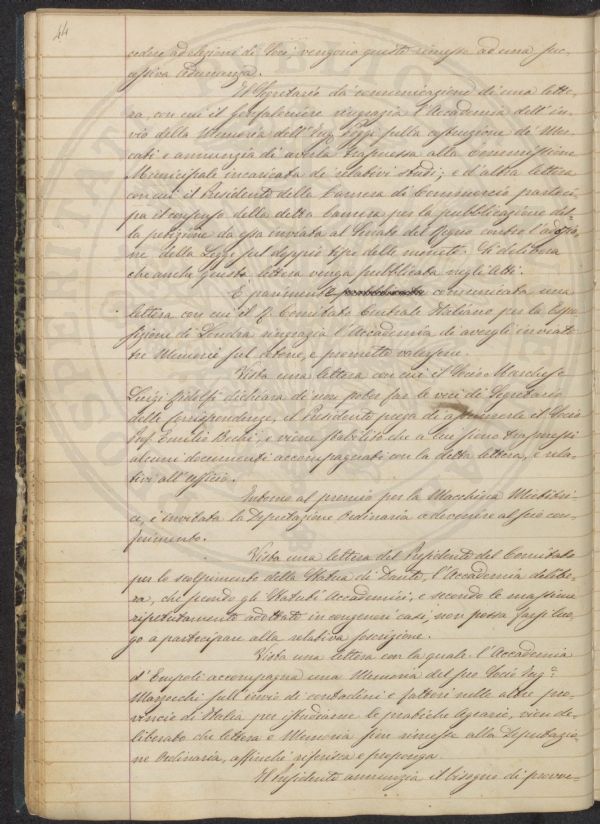 44
cedere ad elezioni di Soci vengono questi rimesse ad una suc-
cessiva adunanza.
Il Segretario dà comunicazione di una lette-
ra, con cui il Gonfaloniere ringrazia l'Accademia dell'in-
vio della Memoria dell'Ing. sulla costruzione di Mer-
cati e annunzia di averla trasmessa alla Commissione
Municipale incaricata di relativi studi; e d'altra lettera
con cui il Presidente della Camera di Commercio parteci-
pa il consenso della detta Camera per la pubblicazione del-
la petizione da essa inviata al Senato del Regno contro l'adozio-
ne della Legge sul doppio tipo delle monete. Si delibera
che anche questa lettera venga pubblicata negli Atti.
È parimente comunicata una
lettera con cui il Comitato Centrale Italiano per la Espo-
sizione di Londra ringrazia l'Accademia di avergli inviato
tre Memorie sul cotone, e promette valersene.
Vista una lettera con cui il Socio Marchese
Luigi Ridolfi dichiara di non poter far le veci di Segretario
delle Corrispondenze, il Presidente prega di assumerle il Socio
Prof. Emilio Bechi, e viene stabilito che a lui sieno trasmessi
alcuni documenti accompagnati con la detta lettera, e rela-
tivi all'ufficio.
Intorno al premio per la Macchina Mietitri-
ce, è invitata la Deputazione Ordinaria a devenire al suo con-
ferimento.
Vista una lettera del Presidente del Comitato
per lo scolpimento della Statua di Dante, l'Accademia delibe-
ra, che stando gli Statuti Accademici, e secondo le massime
ripetutamente adottate in congeneri casi, non possa farsi luo-
go a partecipare alla relativa soscrizione.
Vista una lettera con la quale l'Accademia
d'Empoli accompagna una Memoria del suo Socio Ing.
Marzocchi sull'invio di contadini e fattori nelle altre pro-
vincie di Italia per istudiarne le pratiche Agrarie, vien de-
liberato che lettera e Memoria sien rimesse alla Deputazio-
ne Ordinaria, affinché riferisca e proponga.
Il Presidente annunzia il bisogno di provve-